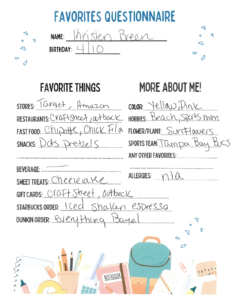 FAVORITES QUESTIONNAIRE
NAME: Kristen Breen
BIRTHDAY: 4/10
FAVORITE THINGS
STORES: Target, Amazon
RESTAURANTS: Craft Street, outback
FAST FOOD: Chipotle, Chick Fil a
SNACKS: Dots pretzels
BEVERAGE:
SWEET TREATS: Cheesecake
GIFT CARDS: Craft Street, outback
STARBUCKS ORDER: Iced Shaken espresso
DUNKIN ORDER: Everything Bagel
MORE ABOUT ME!
COLOR: Yellow, Pink
HOBBIES: Beach, Sports mom
FLOWER/PLANT: Sunflowers
SPORTS TEAM: Tampa Bay Bucs
ANY OTHER FAVORITES:
ALLERGIES: n/a